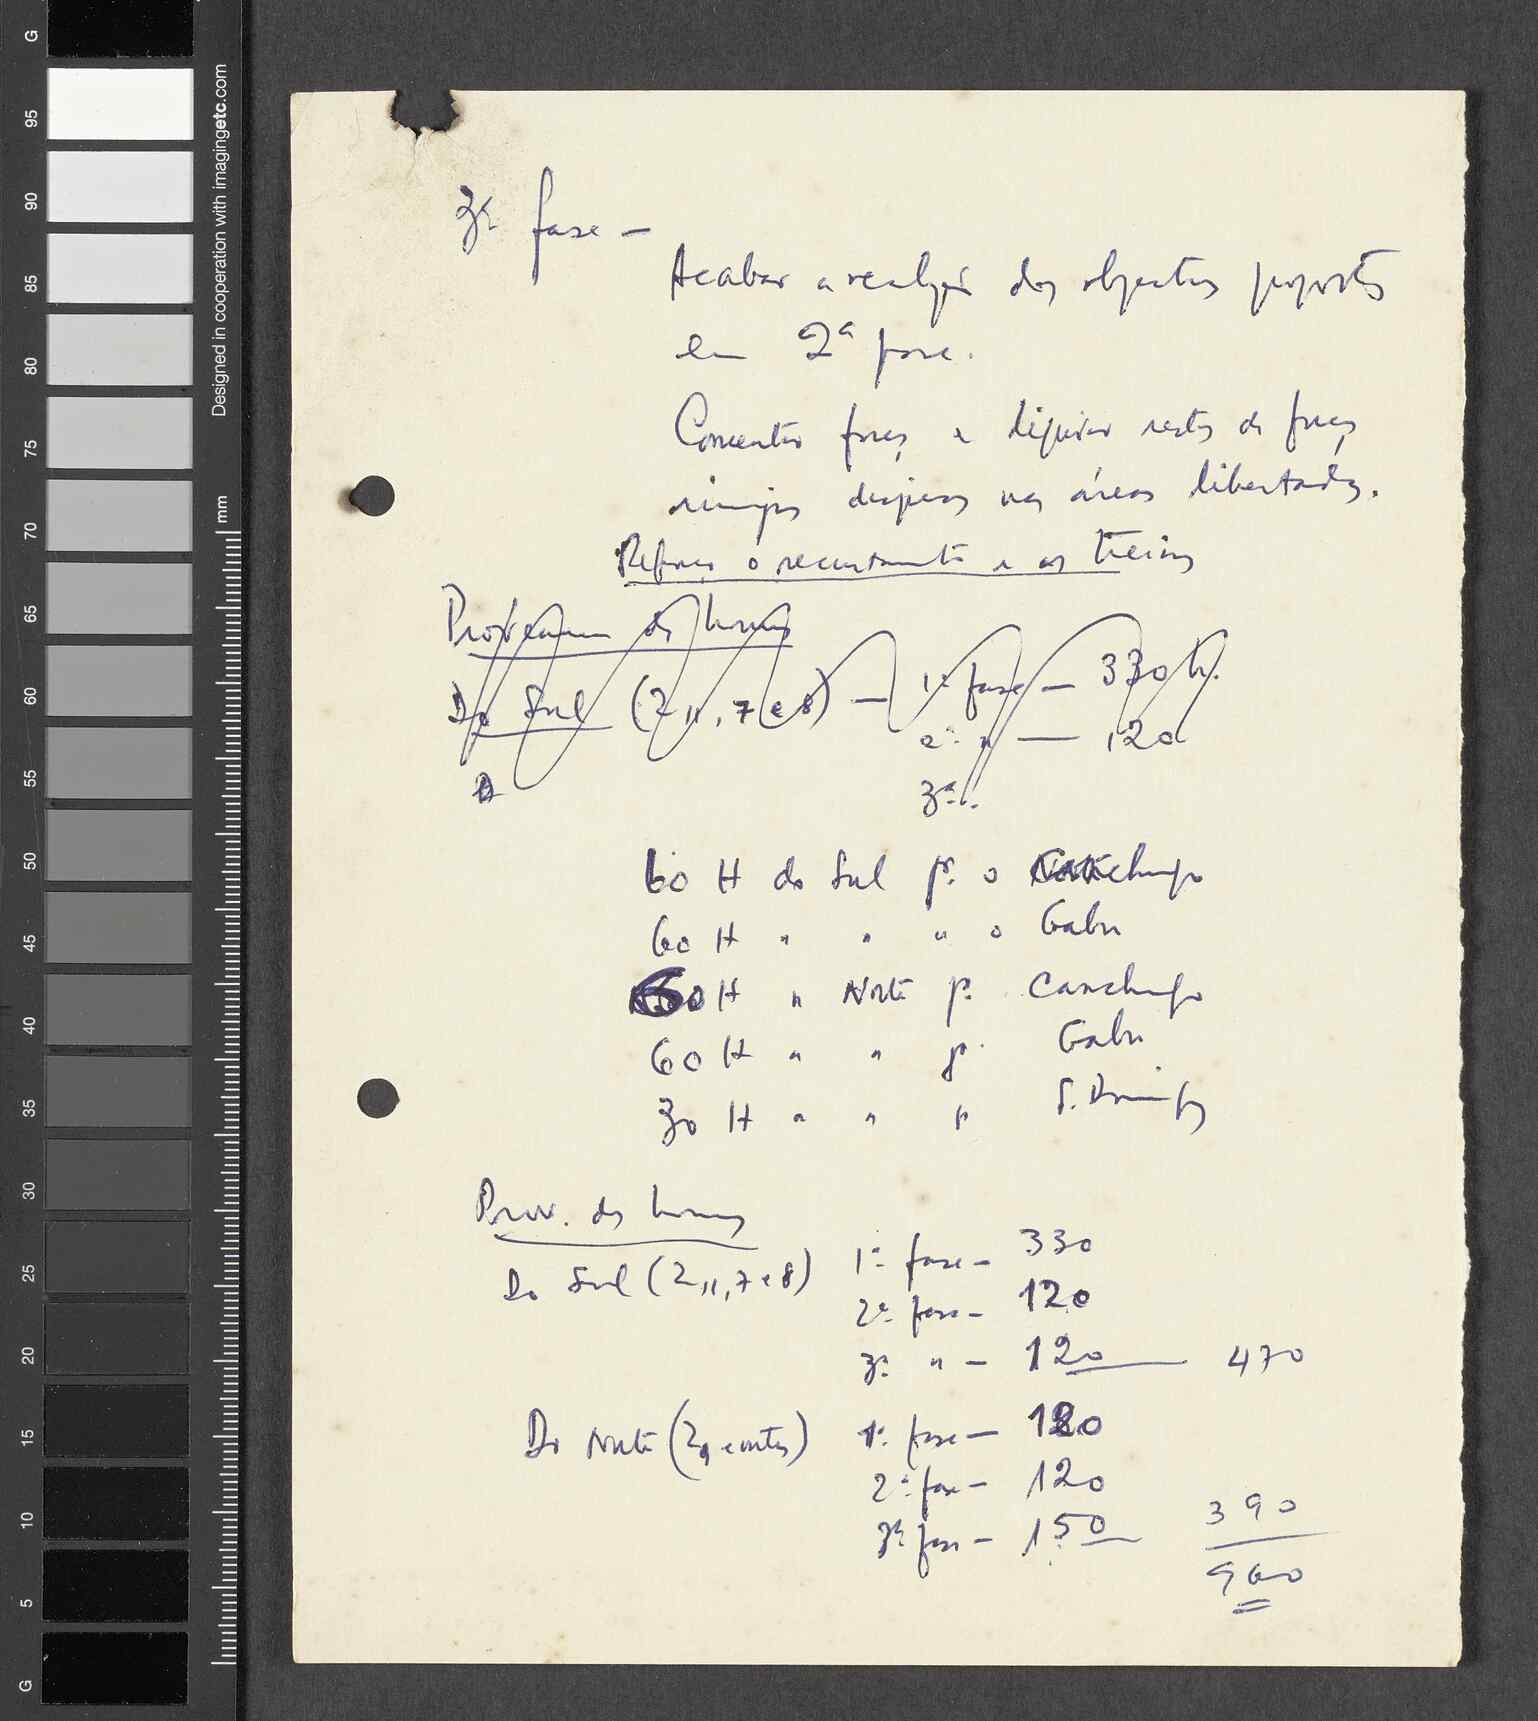 3ª fase —
Acabar a realização dos objectivos propostos
em 2ª fase.
Concentrar forças e liquidar restos de forças
inimigas dispersas nas áreas libertadas.
Reforçar o recrutamento e os treinos
Proveniência dos homens
Do Sul (2, 11, 7 e 8) — 1ª fase — 330 h.
2ª " — 120
3ª
60 H do Sul p. o Canchungo
60 H " " " o Gabu
60 H " Norte p. Canchungo
60 H " " p. Gabu
30 H " " p S. Domingos
Prov. dos homens
Do Sul (2, 11, 7 e 8) 1ª fase — 330
2ª fase — 120
3ª " — 120 470
Do Norte ( ) 1ª fase — 120
2ª fase — 120
3ª fase — 150 390
960
G
95
90
85
80
75
70
65
60
55
50
45
40
35
30
25
20
15
10
5
G
Designed in cooperation with imagingetc.com
mm